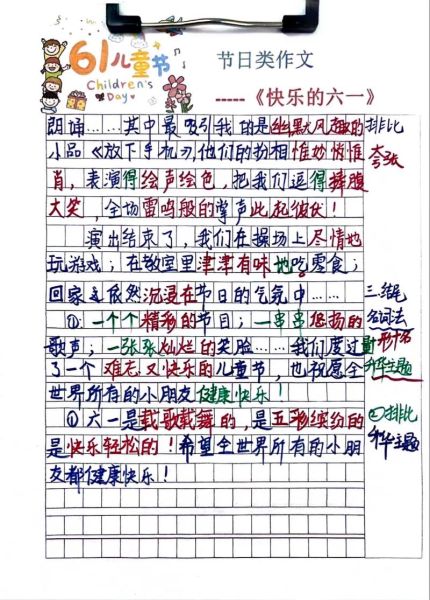 61儿童节
Children's
Day
节日类作文
-----《快乐的六一》
朗诵……其中最吸引我的是幽默风趣的
小品《放下手机》,他们的扮相惟妙惟
肖,表演得绘声绘色,把我们逗得捧腹
大笑,全场雷鸣般的掌声此起彼伏!
演出结束了,我们在操场上尽情地
玩游戏;在教室里津津有味地吃零食;
回家之依然沉浸在节日的气氛中……
①一个个精彩的节目;一串串悠扬的
歌声;一张张灿烂的笑脸……我们度过
了一个难忘又快乐的儿童节,也祝愿全
世界所有的小朋友健康快乐!
①六一是载歌载舞的,是五彩缤纷的
是快乐轻松的!希望全世界所有的小朋
友都健康快乐!
排比
夸张
三.结尾
名词法
升华主题
②排比
升华主题